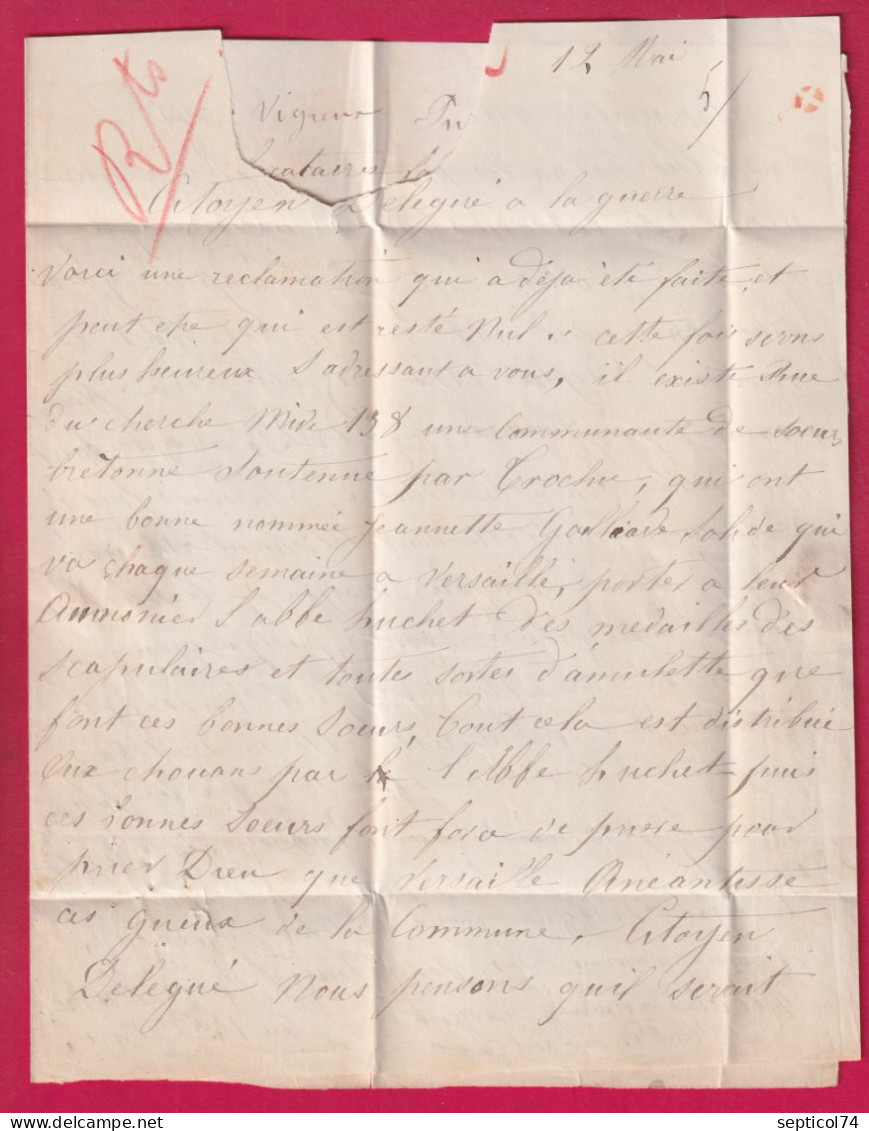 Rts
12 Mai
5/
Vigueur
Citoyen Delegué a la guerre
Voici une reclamation qui a déja èté faite et
peut etre qui est resté Nul. cette fois serons
plus heureux s'adressant a vous, il existe Rue
du cherche Midi 138 une Communauté de soeurs
bretonne Soutenue par Trochu, qui ont
une bonne nommée Jeannette qui
va chaque semaine a Versaille, porter a leur
Aumonier l'abbe huchet des medailles des
scapulaires et toutes sortes d'amulette que
font ces bonnes Soeurs, tout cela est distribué
aux chouans par l'Abbe huchet puis
ces bonnes Soeurs font force de priere pour
prier Dieu que Versaille Anéantisse
ces gueux de la Commune, Citoyen
Delegué Nous pensons quil serait
septicol74